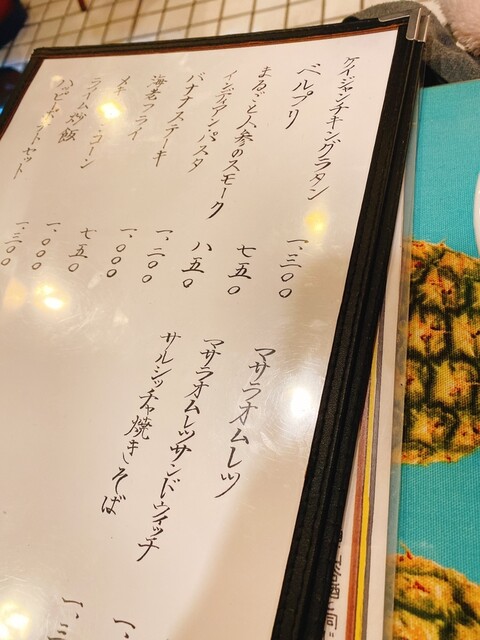 ケイジャンチキングラタン
ベルプリ
まるごと人参のスモーク
インディアンパスタ
バナナステーキ
海老フライ
コーン
ライム炒飯
セット
一、三〇〇
七五〇
八五〇
一、二〇〇
一、〇〇〇
七五〇
一、〇〇〇
一、三〇〇
マサラオムレツ
マサラオムレツサンドウィッチ
サルシッチャ焼きそば